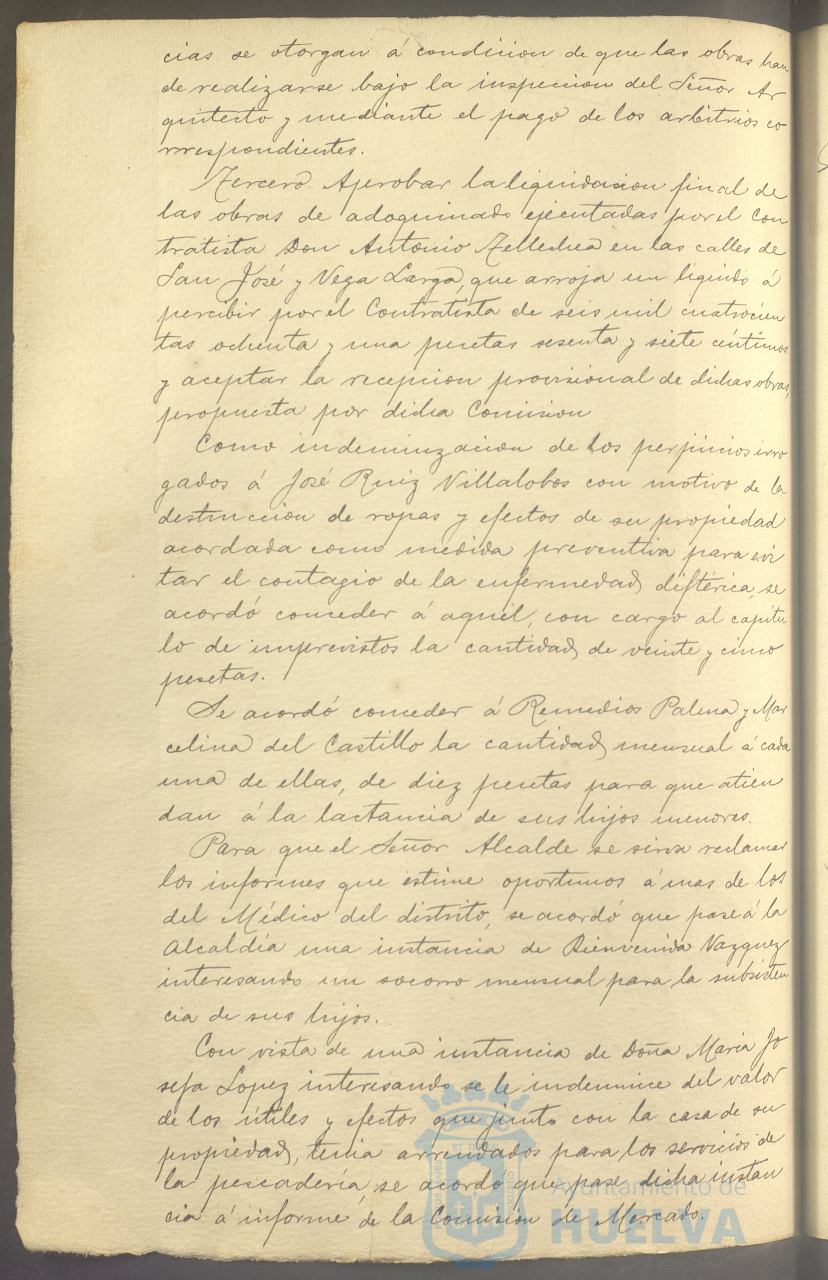 cias se otorgan á condicion de que las obras han
de realizarse bajo la inspeccion del Señor Ar
quitecto y mediante el pago de los arbitrios co
rrespondientes.
Tercero. Aprobar la liquidacion final de
las obras de adoquinado ejecutadas por el Con
tratista Don Antonio Tellechea en las calles de
San José y Vega Larga, que arroja un líquido á
percibir por el Contratista de seis mil cuatrocien
tas ochenta y una pesetas sesenta y siete céntimos
y aceptar la recepcion provisional de dichas obras,
propuesta por dicha Comision
Como indemnizacion de los perjuicios irro
gados á José Ruiz Villalobos con motivo de la
destruccion de ropas y efectos de su propiedad
acordada como medida preventiva para evi
tar el contagio de la enfermedad diftérica, se
acordó conceder á aquél, con cargo al capítu
lo de imprevistos la cantidad de veinte y cinco
pesetas.
Se acordó conceder á Remedios Palma y Mar
celina del Castillo la cantidad mensual á cada
una de ellas, de diez pesetas para que atien
dan á la lactancia de sus hijos menores.
Para que el Señor Alcalde se sirva reclamar
los informes que estime oportunos á mas de los
del Médico del distrito, se acordó que pase á la
Alcaldía una instancia de Bienvenida Vazquez
interesando un socorro mensual para la subsisten
cia de sus hijos.
Con vista de una instancia de Doña Maria Jo
sefa Lopez interesando se le indemnice del valor
de los útiles y efectos que junto con la casa de su
propiedad, tenia arrendados para los servicios de
la pescadería, se acordó que pase dicha instan
cia á informe de la Comision de Mercado.
Ayuntamiento de
HUELVA